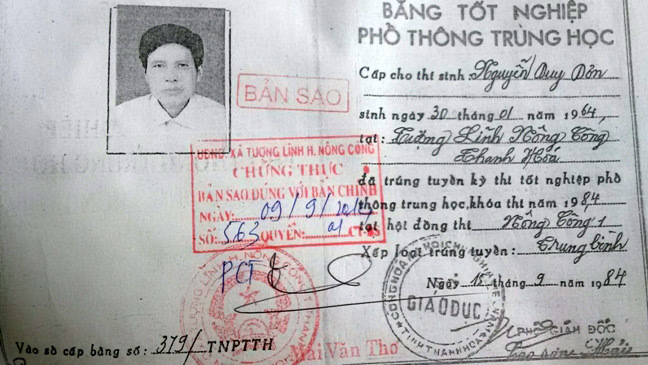 BẰNG TỐT NGHIỆP
PHỔ THÔNG TRUNG HỌC
Cấp cho thí sinh Nguyễn Duy Đôn
sinh ngày 30 tháng 01 năm 1964,
tại: Tượng Lĩnh Nông Cống
Thanh Hóa
đã trúng tuyển kỳ thi tốt nghiệp phổ
thông trung học, khóa thi năm 1984
tại hội đồng thi Nông Cống 1
Xếp loại trúng tuyển: Trung bình
Ngày 15 tháng 9 năm 1984
PHÓ GIÁM ĐỐC
BẢN SAO
UBND. XÃ TƯỢNG LĨNH H. NÔNG CỐNG
CHỨNG THỰC
BẢN SAO ĐÚNG VỚI BẢN CHÍNH
NGÀY: 09/9/
SỐ: 563 QUYỂN: 01 CT-S
PCT
GIÁO DỤC
Mai Văn Thơ
Vào sổ cấp bằng số: 379/TNPTTH